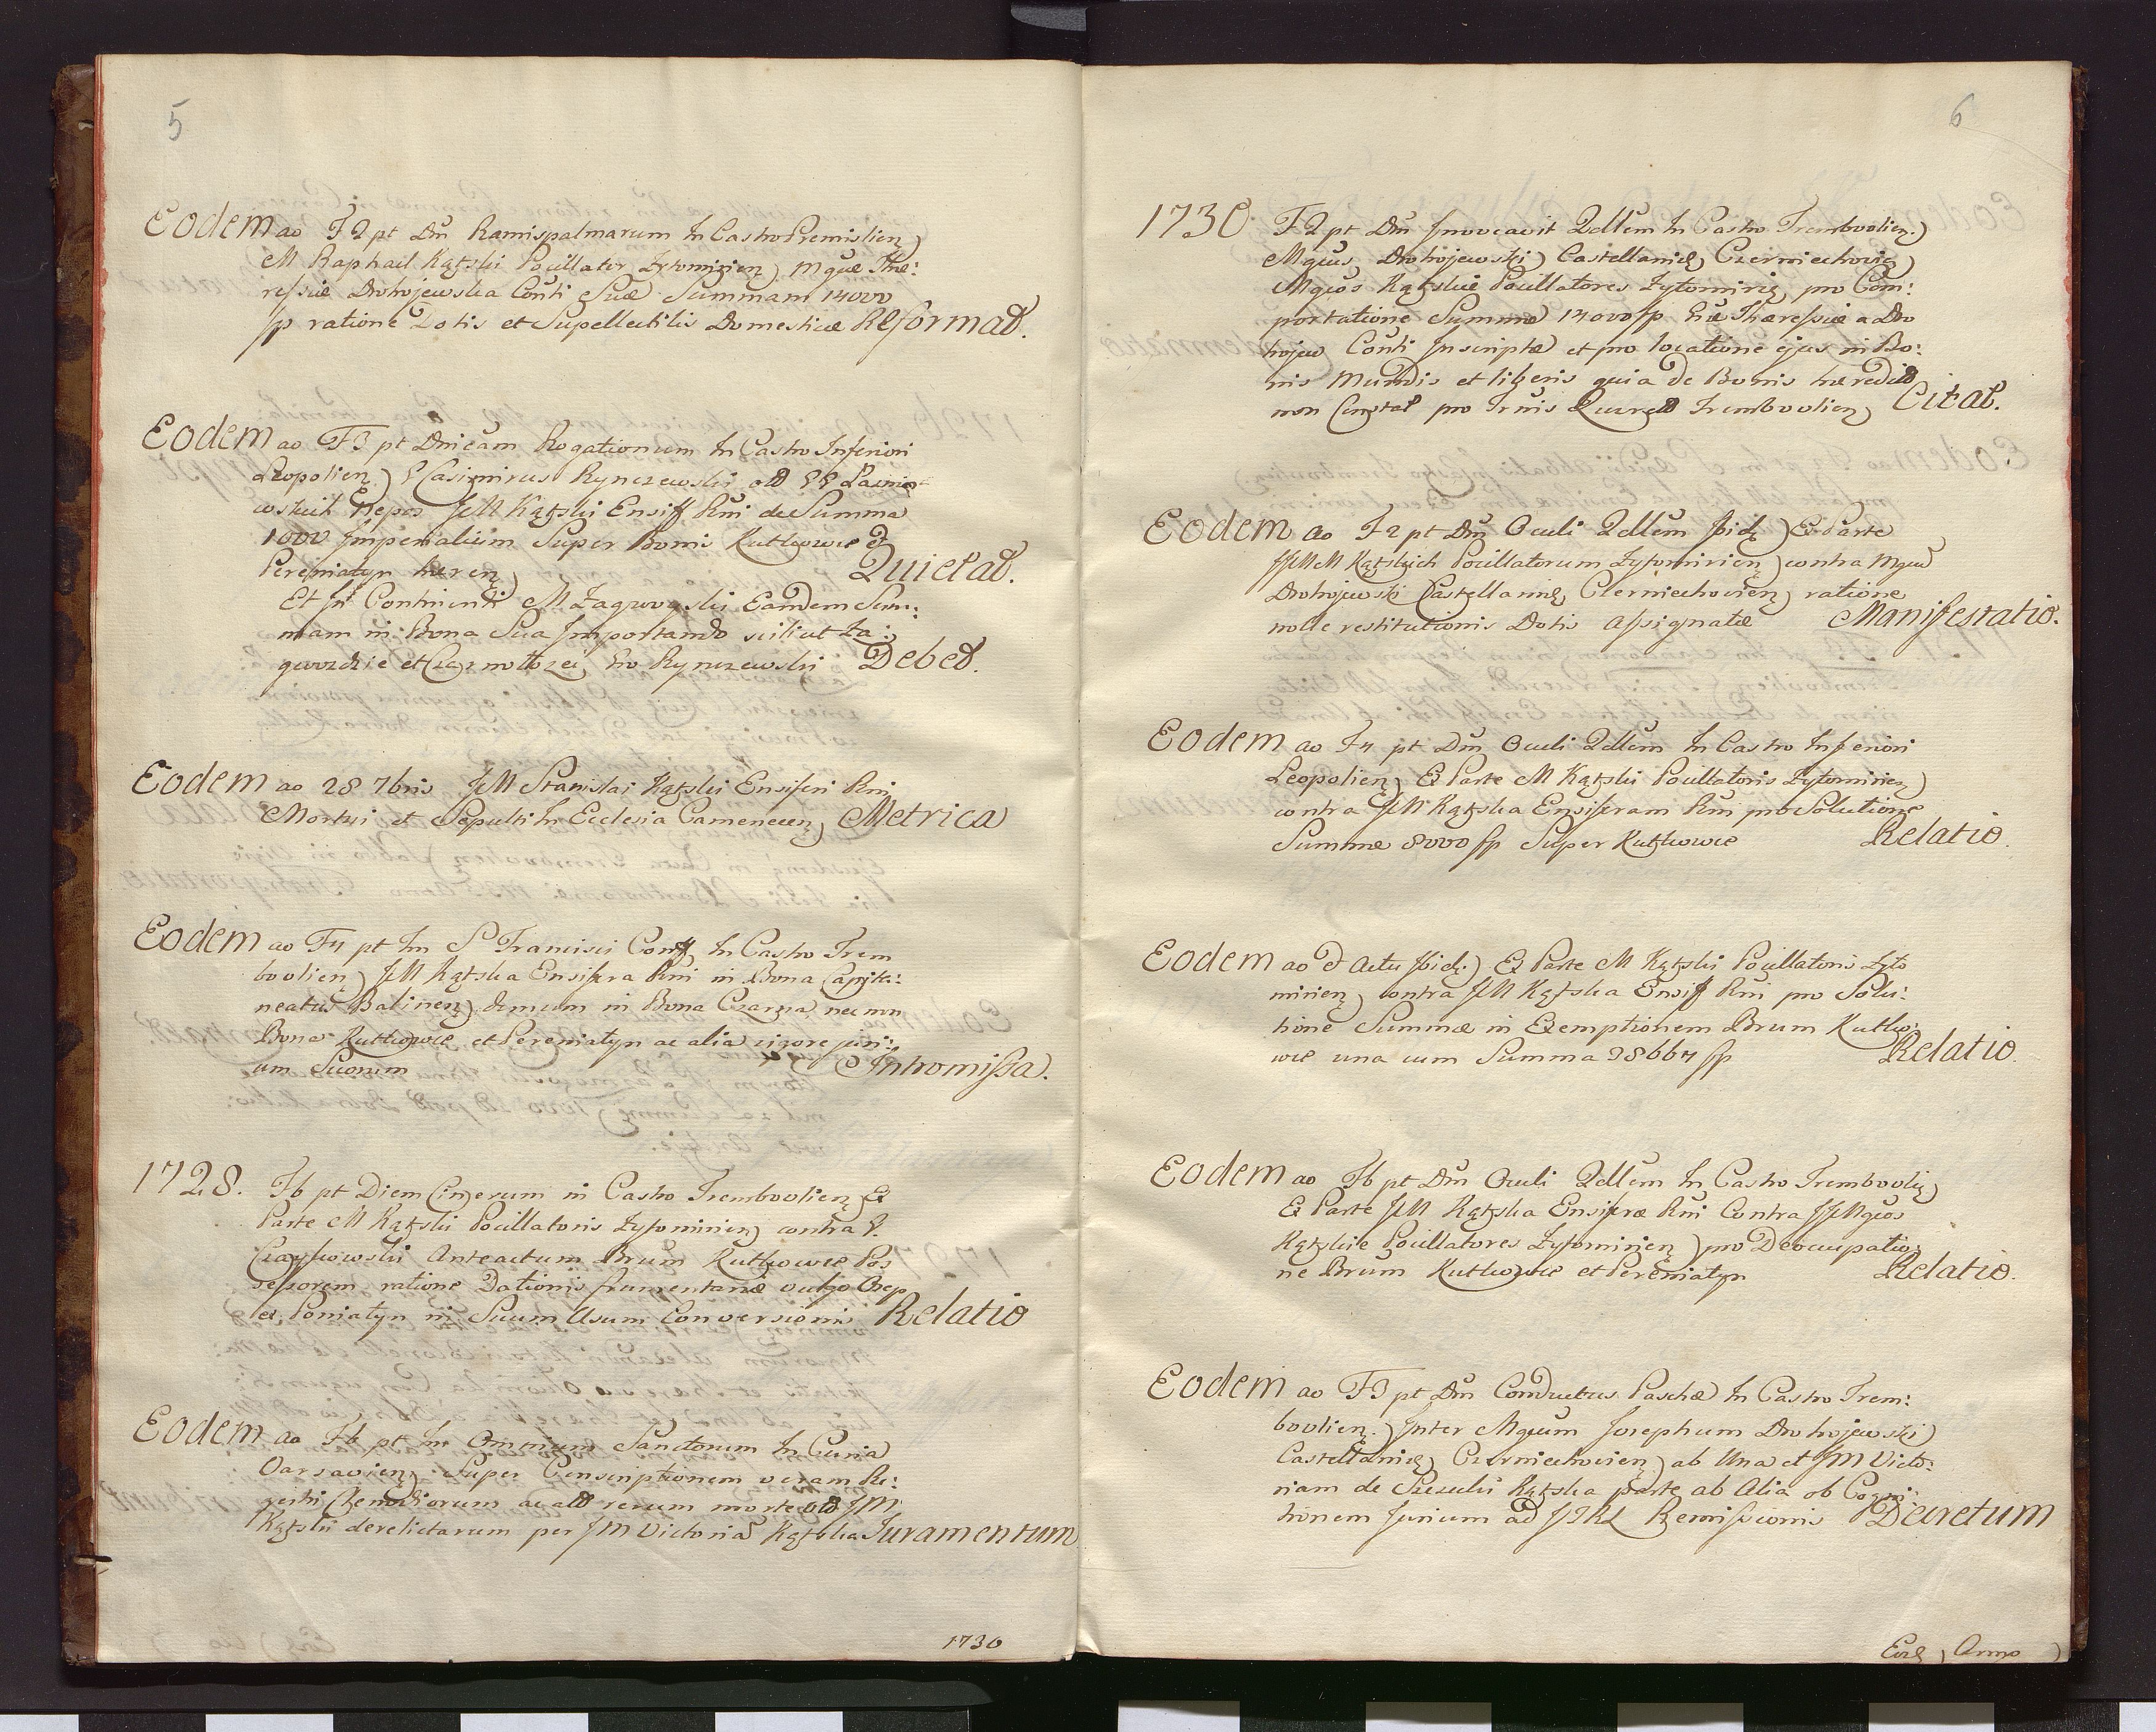 5
Eodem ao F2 pt Dm Ramispalmarum In Castro Premislien
M Raphael Kątski Pocillator Zytomirien Mgnae The:
ressiae Drohojewska Conti Suae Summam 14000
fp ratione Dotis et Supellectilis Domesticae Reformat.
Eodem ao F3 pt Dnicam Rogationum In Castro Inferiori
Leopolien G Casimirus Rynczewski
wskich Nepos JM Kątski Ensif Rni de Summa
1000 Imperialium Super Bonis Kutkowce et
Peremiatyn haeren Quietat.
Et In Continenti M Zagwoyski Eandem Sum:
mam in Bona Sua Importando scilicet Za:
gwozdzie et Czarnołozce, Eo Rynczewski Debet.
Eodem ao 28 7bris JM Stanislai Kątski Ensiferi Rni
Mortui et Sepulti In Ecclesia Camenecen Metrica
Eodem ao F4 pt Fm S Francisci Conf, In Castro Trem
boolien JM Kątska Ensifera Rni in Bona Capita:
neatus Balinen demum in Bona Czarna nec non
Bona Kutkowce et Peremiatyn ac alia vigore juri:
um Suorum Intromissa.
1728. F6 pt Diem Cinerum in Castro Tremboolien Ex
Parte M Kątski Pocillatoris Zytomirien contra G.
Czaykowski Anteactum Brum Kutkowce Pos
sessorem ratione Dationis frumentariae vulgo Osep
ex Poniatyn in Suum Usum Conversionis Relatio
Eodem ao F6 pt Fm Omnium Sanctorum In Curia
Varsavien Super Conscriptionem veram Re:
gestri Clenodiorum ac ald rerum morte old JM
Kątski derelictarum per JM Victoria Kątska Juramentum
1730
6
1730. F2 pt Dm Invocavit Qdllem In Castro Tremboolien.
Mgcus Drohojewski Castellanic Czerniechovien
Mgcos Kątskie Pocillatores Zytomirien pro Com:
portatione Summae 14000 fp Eae Theressiae a Dro
hojow Conti Inscriptae et pro locatione ejus in Bo:
nis Mundis et liberis quia de Bonis haeredit
non Constat pro Trnis Querel Tremboolien Citat.
Eodem ao F2 pt Dm Oculi Qdllem Ibid Ex Parte
JJMM Kątskich Pocillatorum Zytomirien contra Mgcum
Drohojewski Castellanic Czerniechovien ratione
nolle restitutionis Dotis Assignatae Manifestatio.
Eodem ao F4 pt Dm Oculi Qdllem In Castro Inferiori
Leopolien Ex Parte M Kątski Pocillatoris Zytomirien
contra JM Kątska Ensiferam Rni pro Solutione
Summae 8000 fp Super Kutkowce Relatio.
Eodem ao & Actu Ibid. Ex Parte M Kątski Pocillatoris Zyto
mirien contra JM Kątska Ensif Rni pro Solu:
tione Summae in Exemptionem Brum Kutko:
wce una cum Summa 38667 fp Relatio.
Eodem ao F6 pt Dm Oculi Qdllem In Castro Tremboolien
Ex Parte JM Kątska Ensiferae Rni Contra JJMgcos
Kątskie Pocillatores Zytomirien pro Deoccupatio:
ne Brum Kutkowce et Peremiatyn Relatio.
Eodem ao F3 pt Dm Conductus Paschae In Castro Trem:
boolien. Inter Mgcum Josephum Drohojewski
Castellanic Czerniechovien ab Una et JM Victo:
riam de Szczuki Kątska parte ab Alia ob Cogni:
tionem Jurium ad Remissionis Decretum
Eod Anno